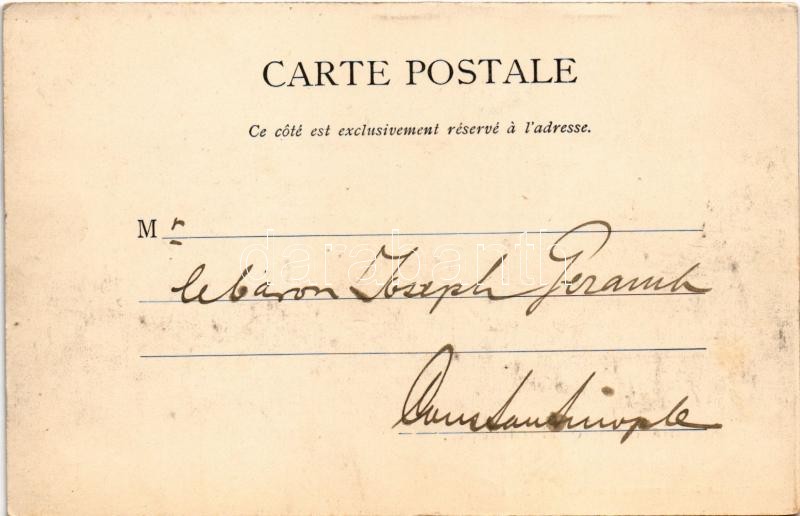 CARTE POSTALE
Ce côté est exclusivement réservé à l'adresse.
M r
le baron Joseph Geramb
Constantinople
darabanth